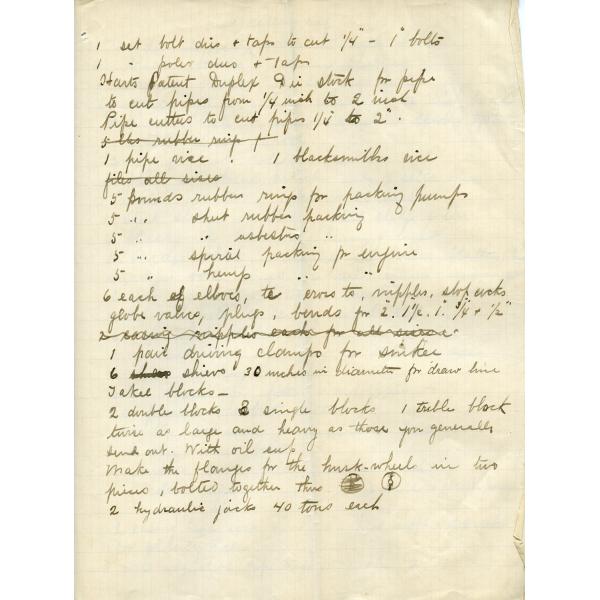 1 set bolt dies + taps to cut 1/4" - 1" bolts
1 " poleo dies + Taps
Harts Patent Duplex Die stock for pipe
to cut pipes from 1/4 inch to 2 inch
Pipe cutters to cut pipes 1/4 to 2".
5 lbs rubber ring
1 pipe vice . 1 blacksmiths vice
files all sizes
5 Pounds rubber rings for packing pumps
5 " . sheet rubber packing
5 " . " asbestos "
5 " . spiral packing for engine
5 " hemp " "
6 each of elbows, te cross te, nipples, stop cocks,
globe valves, plugs, bends for 2". 1 1/2. 1". 3/4 + 1/2"
2 casing nipples each for all sizes
1 pair driving clamps for sinker
6 shivs 30 inches in diameter for draw line
Takel blocks -
2 double blocks 2 single blocks 1 treble block
twice as large and heavy as those you generally
send out. With oil cup
Make the flanges for the husk-wheel in two
pieces, bolted together thus
2 hydraulic jacks 40 tons each